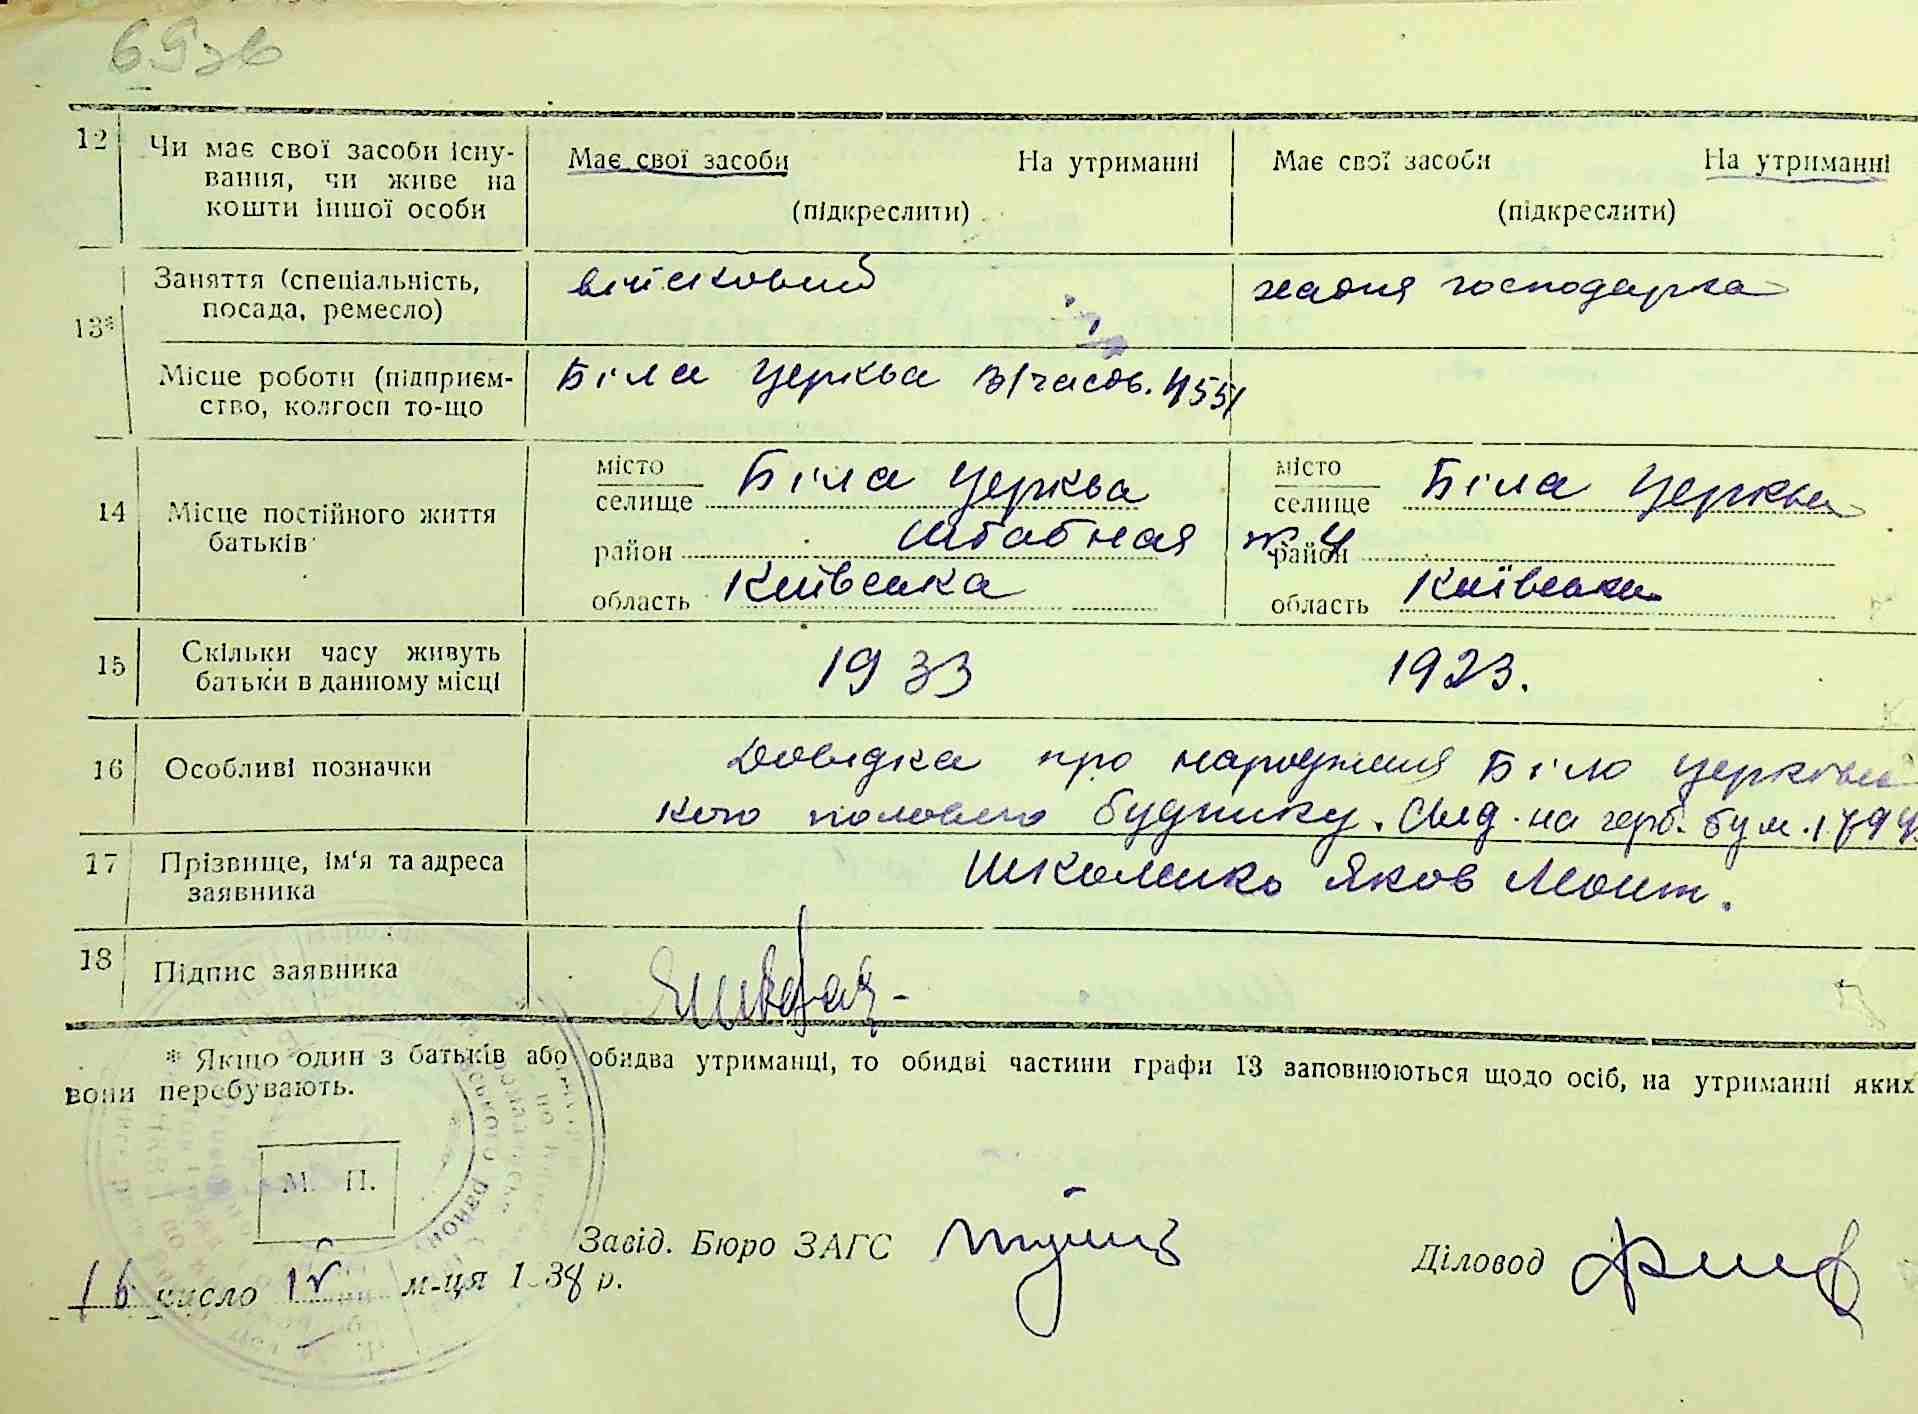 69зв
12 Чи має свої засоби існу-
вання, чи живе на
кошти іншої особи
Має свої засоби На утриманні
(підкреслити)
Має свої засоби На утриманні
(підкреслити)
13* Заняття (спеціальність,
посада, ремесло)
військовий
хатня господарка
Місце роботи (підприєм-
ство, колгосп то-що
Біла Церква в/часть. 4551
14 Місце постійного життя
батьків
місто
селище Біла Церква
район Штабная
область Київська
місто
селище Біла Церква
№ 4
район
область Київська
15 Скільки часу живуть
батьки в данному місці
1933
1923.
16 Особливі позначки
Довідка про народження Біло Церківсь
кого половго будинку. Свід. на герб. бум. 1794
17 Прізвище, ім'я та адреса
заявника
Яков Моит.
18 Підпис заявника
* Якщо один з батьків або обидва утриманці, то обидві частини графи 13 заповнюються щодо осіб, на утриманні яких
вони перебувають.
М. П.
Завід. Бюро ЗАГС
Діловод
16 число IV м-ця 1938 р.